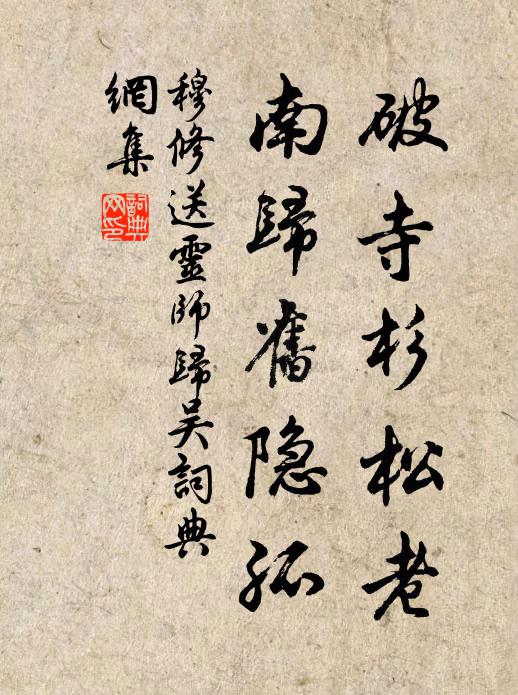 破寺杉松老
南歸舊隐孤
穆修送靈師歸吴詞典
網集
詞典網印